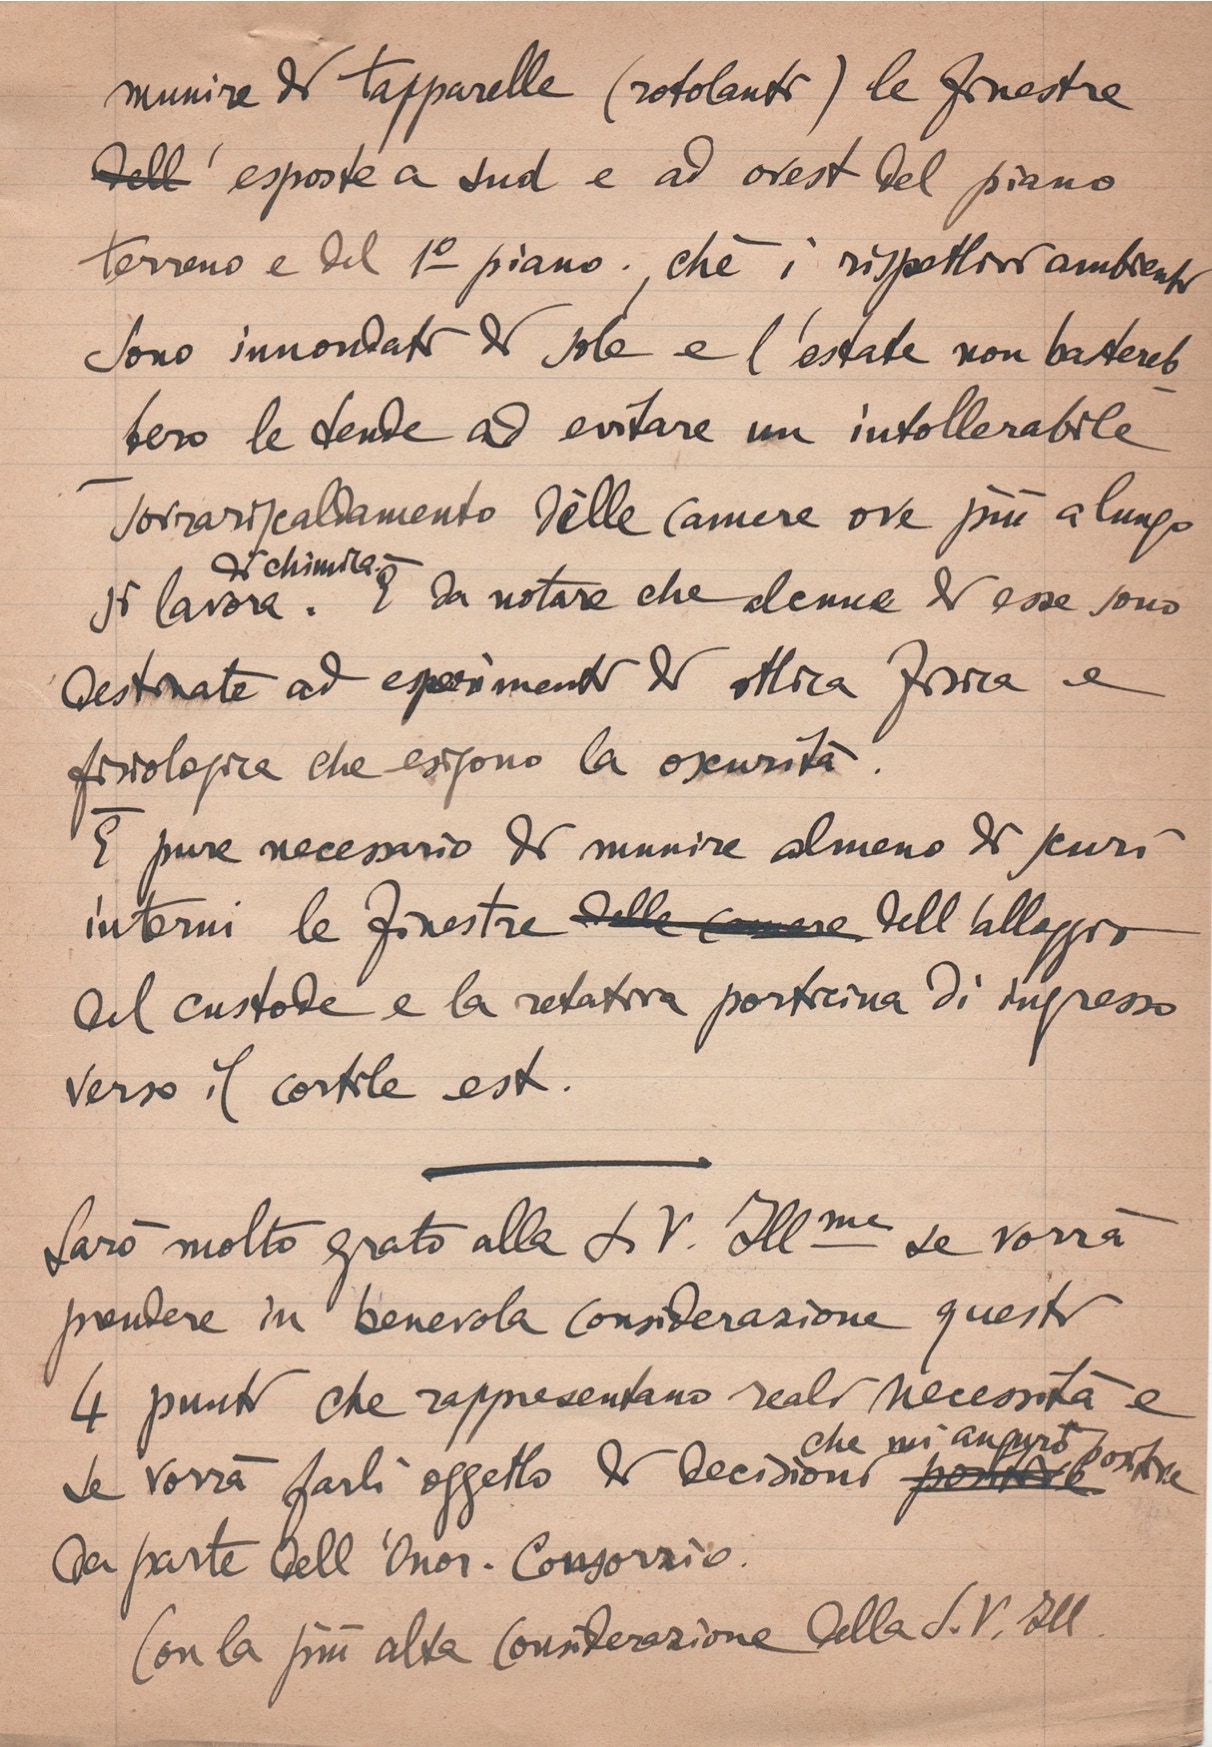 munire di tapparelle (rotolanti) le finestre
dell' esposte a sud e ad ovest del piano
terreno e del 1º piano., chè i rispettivi ambienti
sono innondati di sole e l'estate non bastereb
bero le tende ad evitare un intollerabile
sovrariscaldamento delle camere ove più a lungo
di chimica.
si lavora. È da notare che alcune di esse sono
destinate ad esperimenti di ottica fisica e
fisiologica che esigono la oscurità.
È pure necessario di munire almeno di scuri
interni le finestre delle camere dell'alloggio
del custode e la relativa porticina di ingresso
verso il cortile est.
Sarò molto grato alla S.V. Ill me se vorrà
prendere in benevola considerazione questi
4 punti che rappresentano reali necessità e
che mi auguro positive
se vorrà farli oggetto di decisioni positive
da parte dell'Onor. Consorzio.
Con la più alta considerazione della S.V. Ill